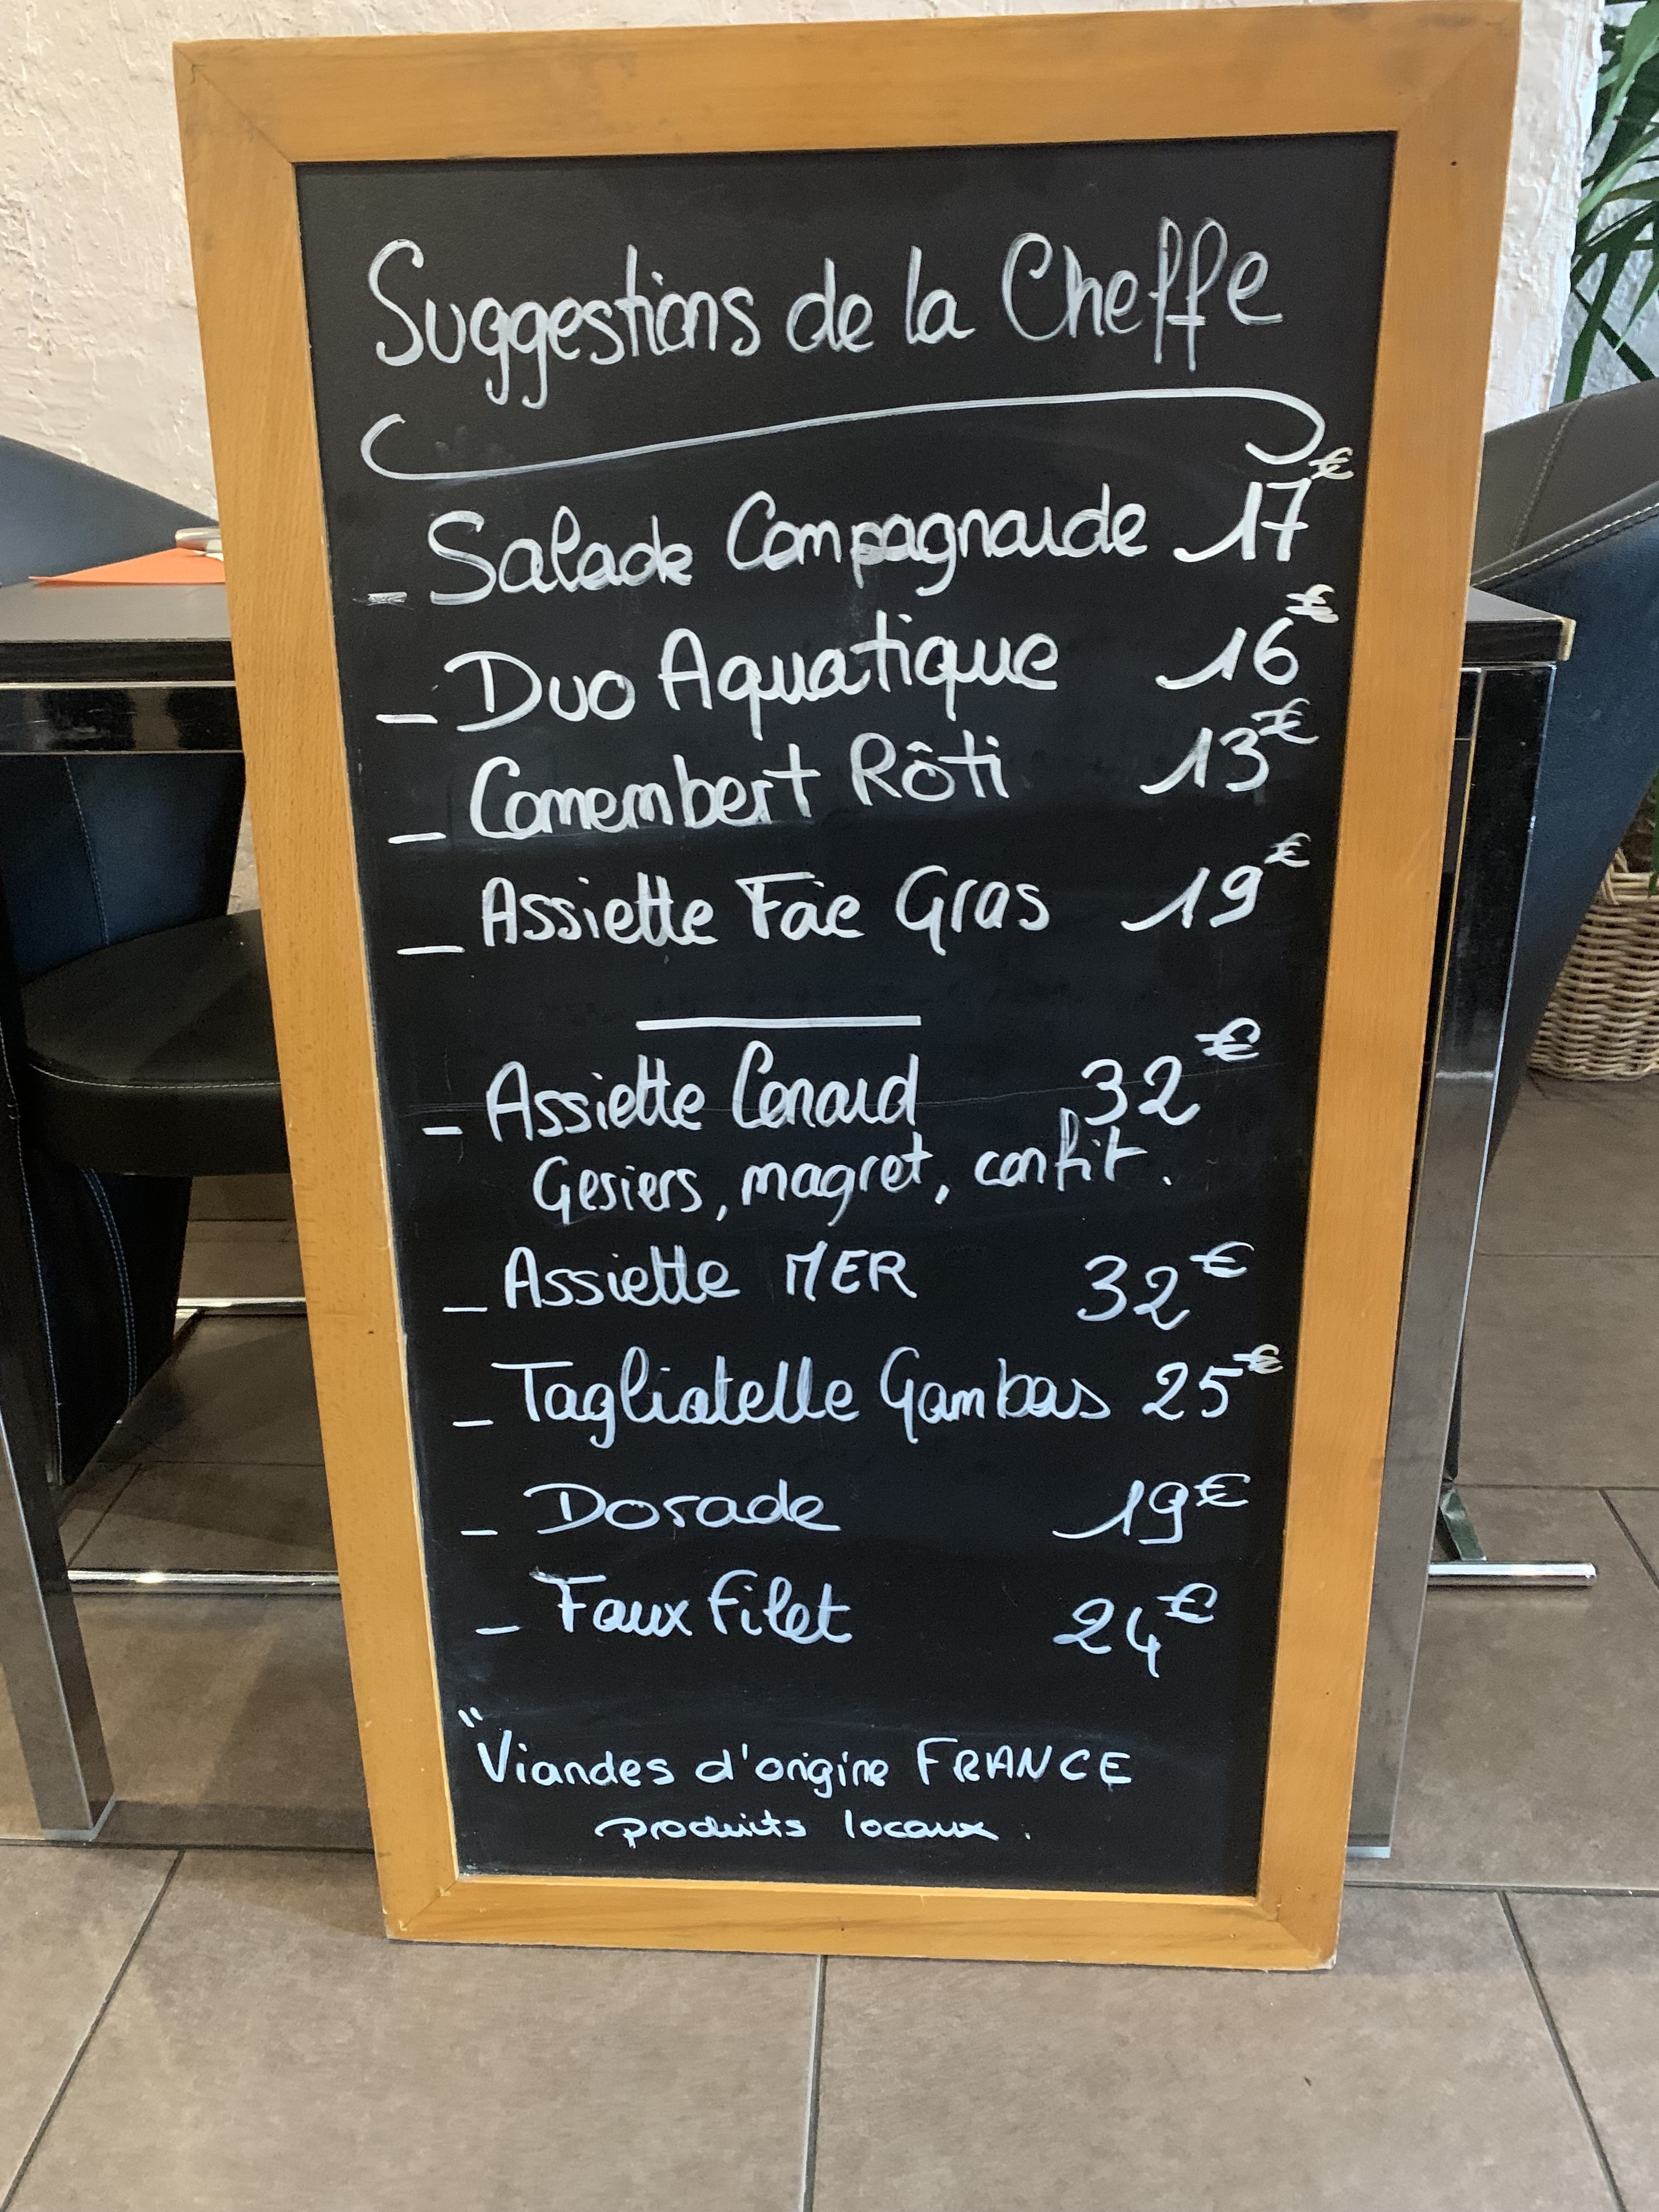 Suggestions de la Cheffe
- Salade Campagnarde 17€
- Duo Aquatique 16€
- Camembert Rôti 13€
- Assiette Foie Gras 19€
- Assiette Canard 32€
Gesiers, magret, confit.
- Assiette MER 32€
- Tagliatelle Gambas 25€
- Dorade 19€
- Faux filet 24€
"Viandes d'origine FRANCE
produits locaux.